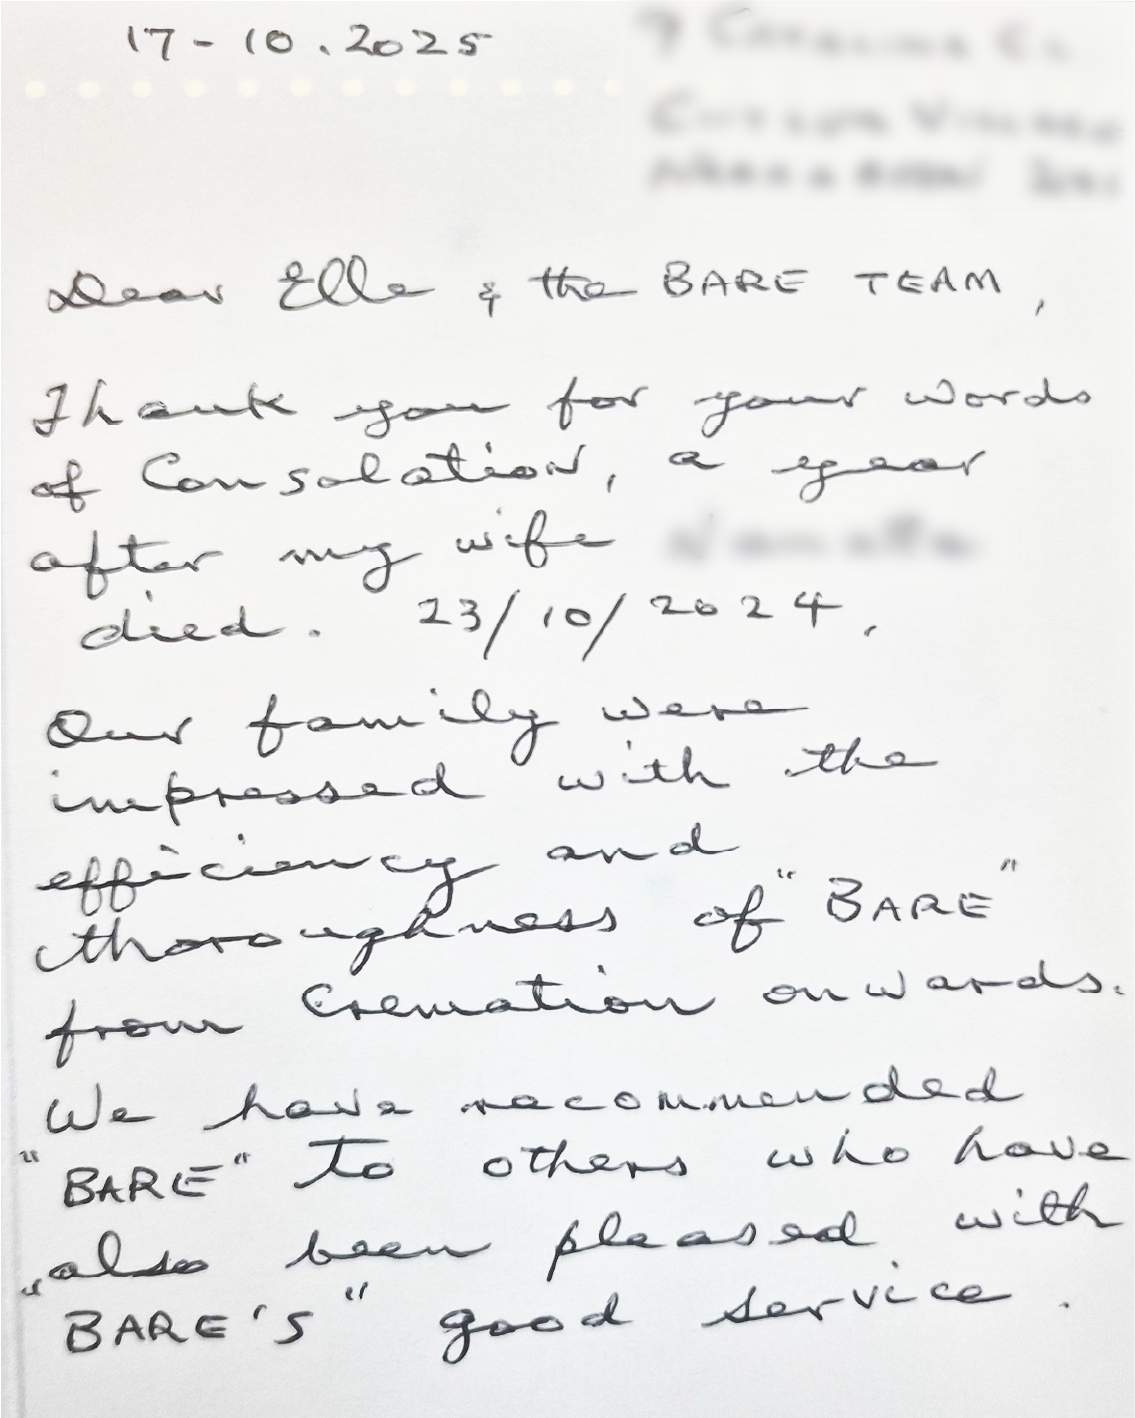 17-10.2025
Dear Elle & the BARE TEAM,
Thank you for your words
of Consolation, a year
after my wife
died. 23/10/2024,
Our family were
impressed with the
efficiency and
thoroughness of "BARE"
from Cremation onwards.
We have recommended
"BARE" to others who have
also been pleased with
"BARE'S" good service.